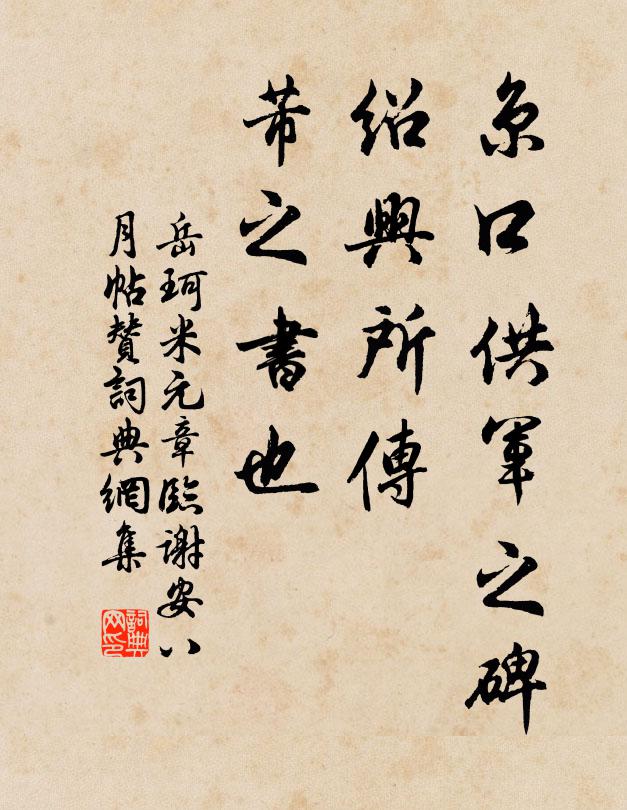 京口供軍之碑
紹興所傳
芾之書也
岳珂米元章臨謝安八
月帖贊詞典網集
詞典
网印